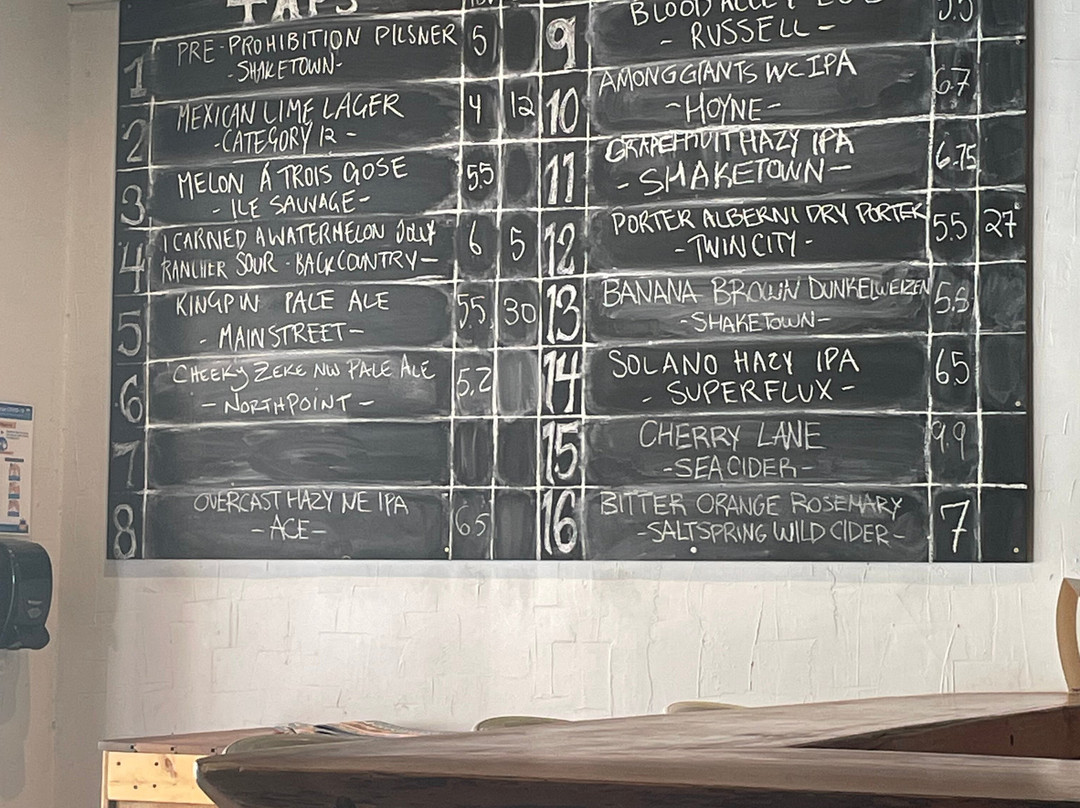 TAPS
1 PRE-PROHIBITION PILSNER 5
-SHAKETOWN-
2 MEXICAN LIME LAGER 4 12
-CATEGORY 12-
3 MELON Á TROIS GOSE 5.5
- ILE SAUVAGE-
4 I CARRIED A WATERMELON JOLLY 6 5
RANCHER SOUR - BACKCOUNTRY-
5 KINGPIN PALE ALE 5.5 30
- MAINSTREET-
6 CHEEKY ZEKE NW PALE ALE 5.2
- NORTHPOINT -
7
8 OVERCAST HAZY NE IPA 6.5
-ACE-
9 BLOOD ALLEY 5.5
- RUSSELL -
10 AMONG GIANTS WC IPA 6.7
-HOYNE-
11 GRAPEFRUIT HAZY IPA 6.75
- SHAKETOWN-
12 PORTER ALBERNI DRY PORTER 5.5 27
-TWIN CITY-
13 BANANA BROWN DUNKELWEIZEN 5.5
-SHAKETOWN-
14 SOLANO HAZY IPA 6.5
- SUPERFLUX -
15 CHERRY LANE 9.9
-SEA CIDER-
16 BITTER ORANGE ROSEMARY 7
-SALTSPRING WILD CIDER-